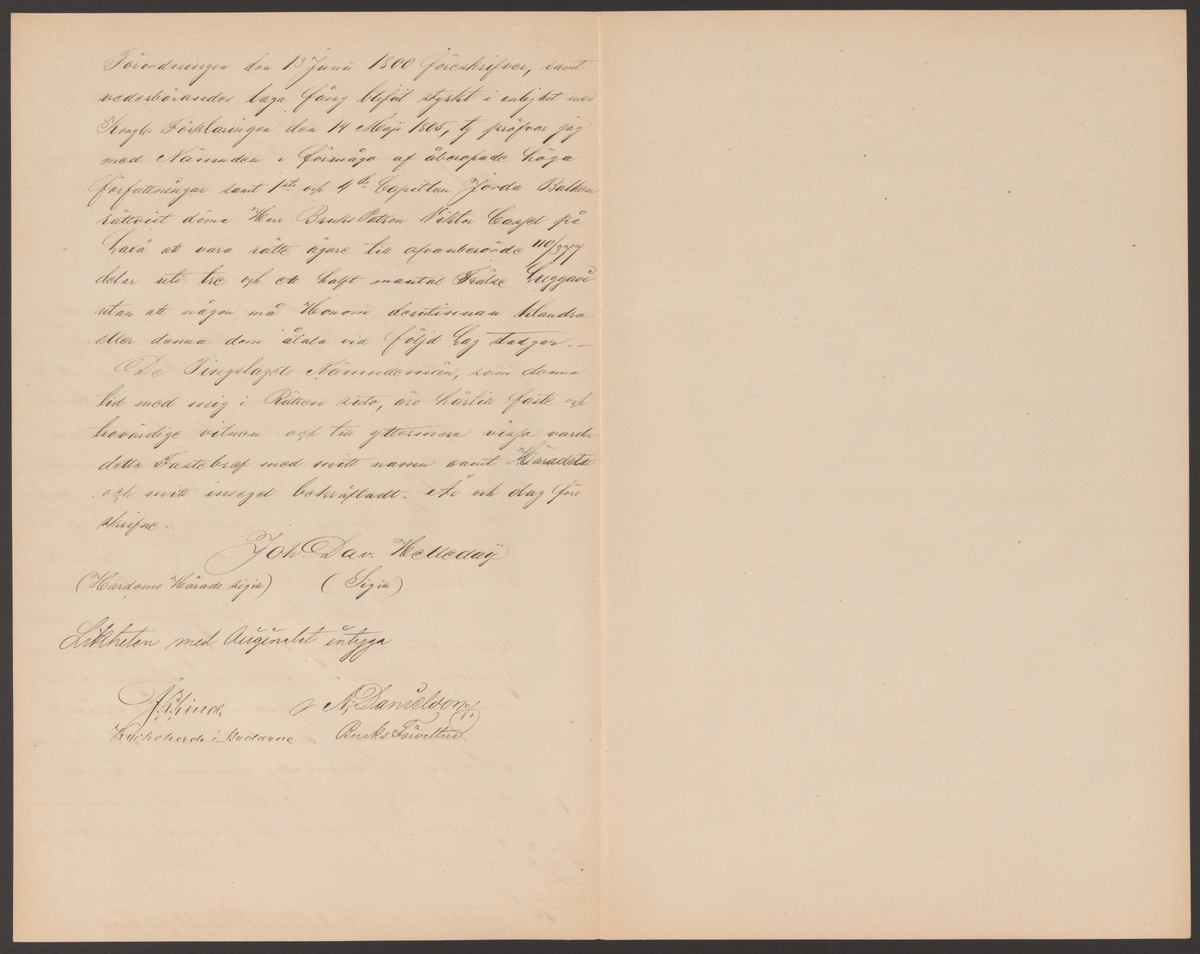 Förordningen den 13 Junii 1800 föreskrifver, samt
vederbörandes laga fång blifvit styrkt i enlighet med
Kongl. Förklaringen den 14 Maji 1805, ty pröfvar jag
med Nämnden i förmåga af åberopade höga
författningar samt 1sta och 4de Capitlen Jorda Balken
rättvist döma Herr Bruks Patron Viktor Cassel på
Laxå att vara rätte ägare till ofvanberörde 110/377
delar uti tre och ett halft mantal Frälse Luggavi
utan att någon må Honom deritinnan klandra
eller denna dom återa vid följd Lag stadgar.—
De Tingslaget Nämndemän, som denna
tid med mig i Rätten suto, äro härtill faste och
trovärdige vitnen och till yttermera visso varder
detta Fastebref med mitt namn samt Häradets
och mitt insegel bekräftadt. År och dag före
skrifne.
Joh. Dav. Helleday
(Hardemo Härads sigill) (Sigill)
Likheten med Originalet intyga
N. Danielson
Kyrkoherde i Bodarne Bruks Förvaltare